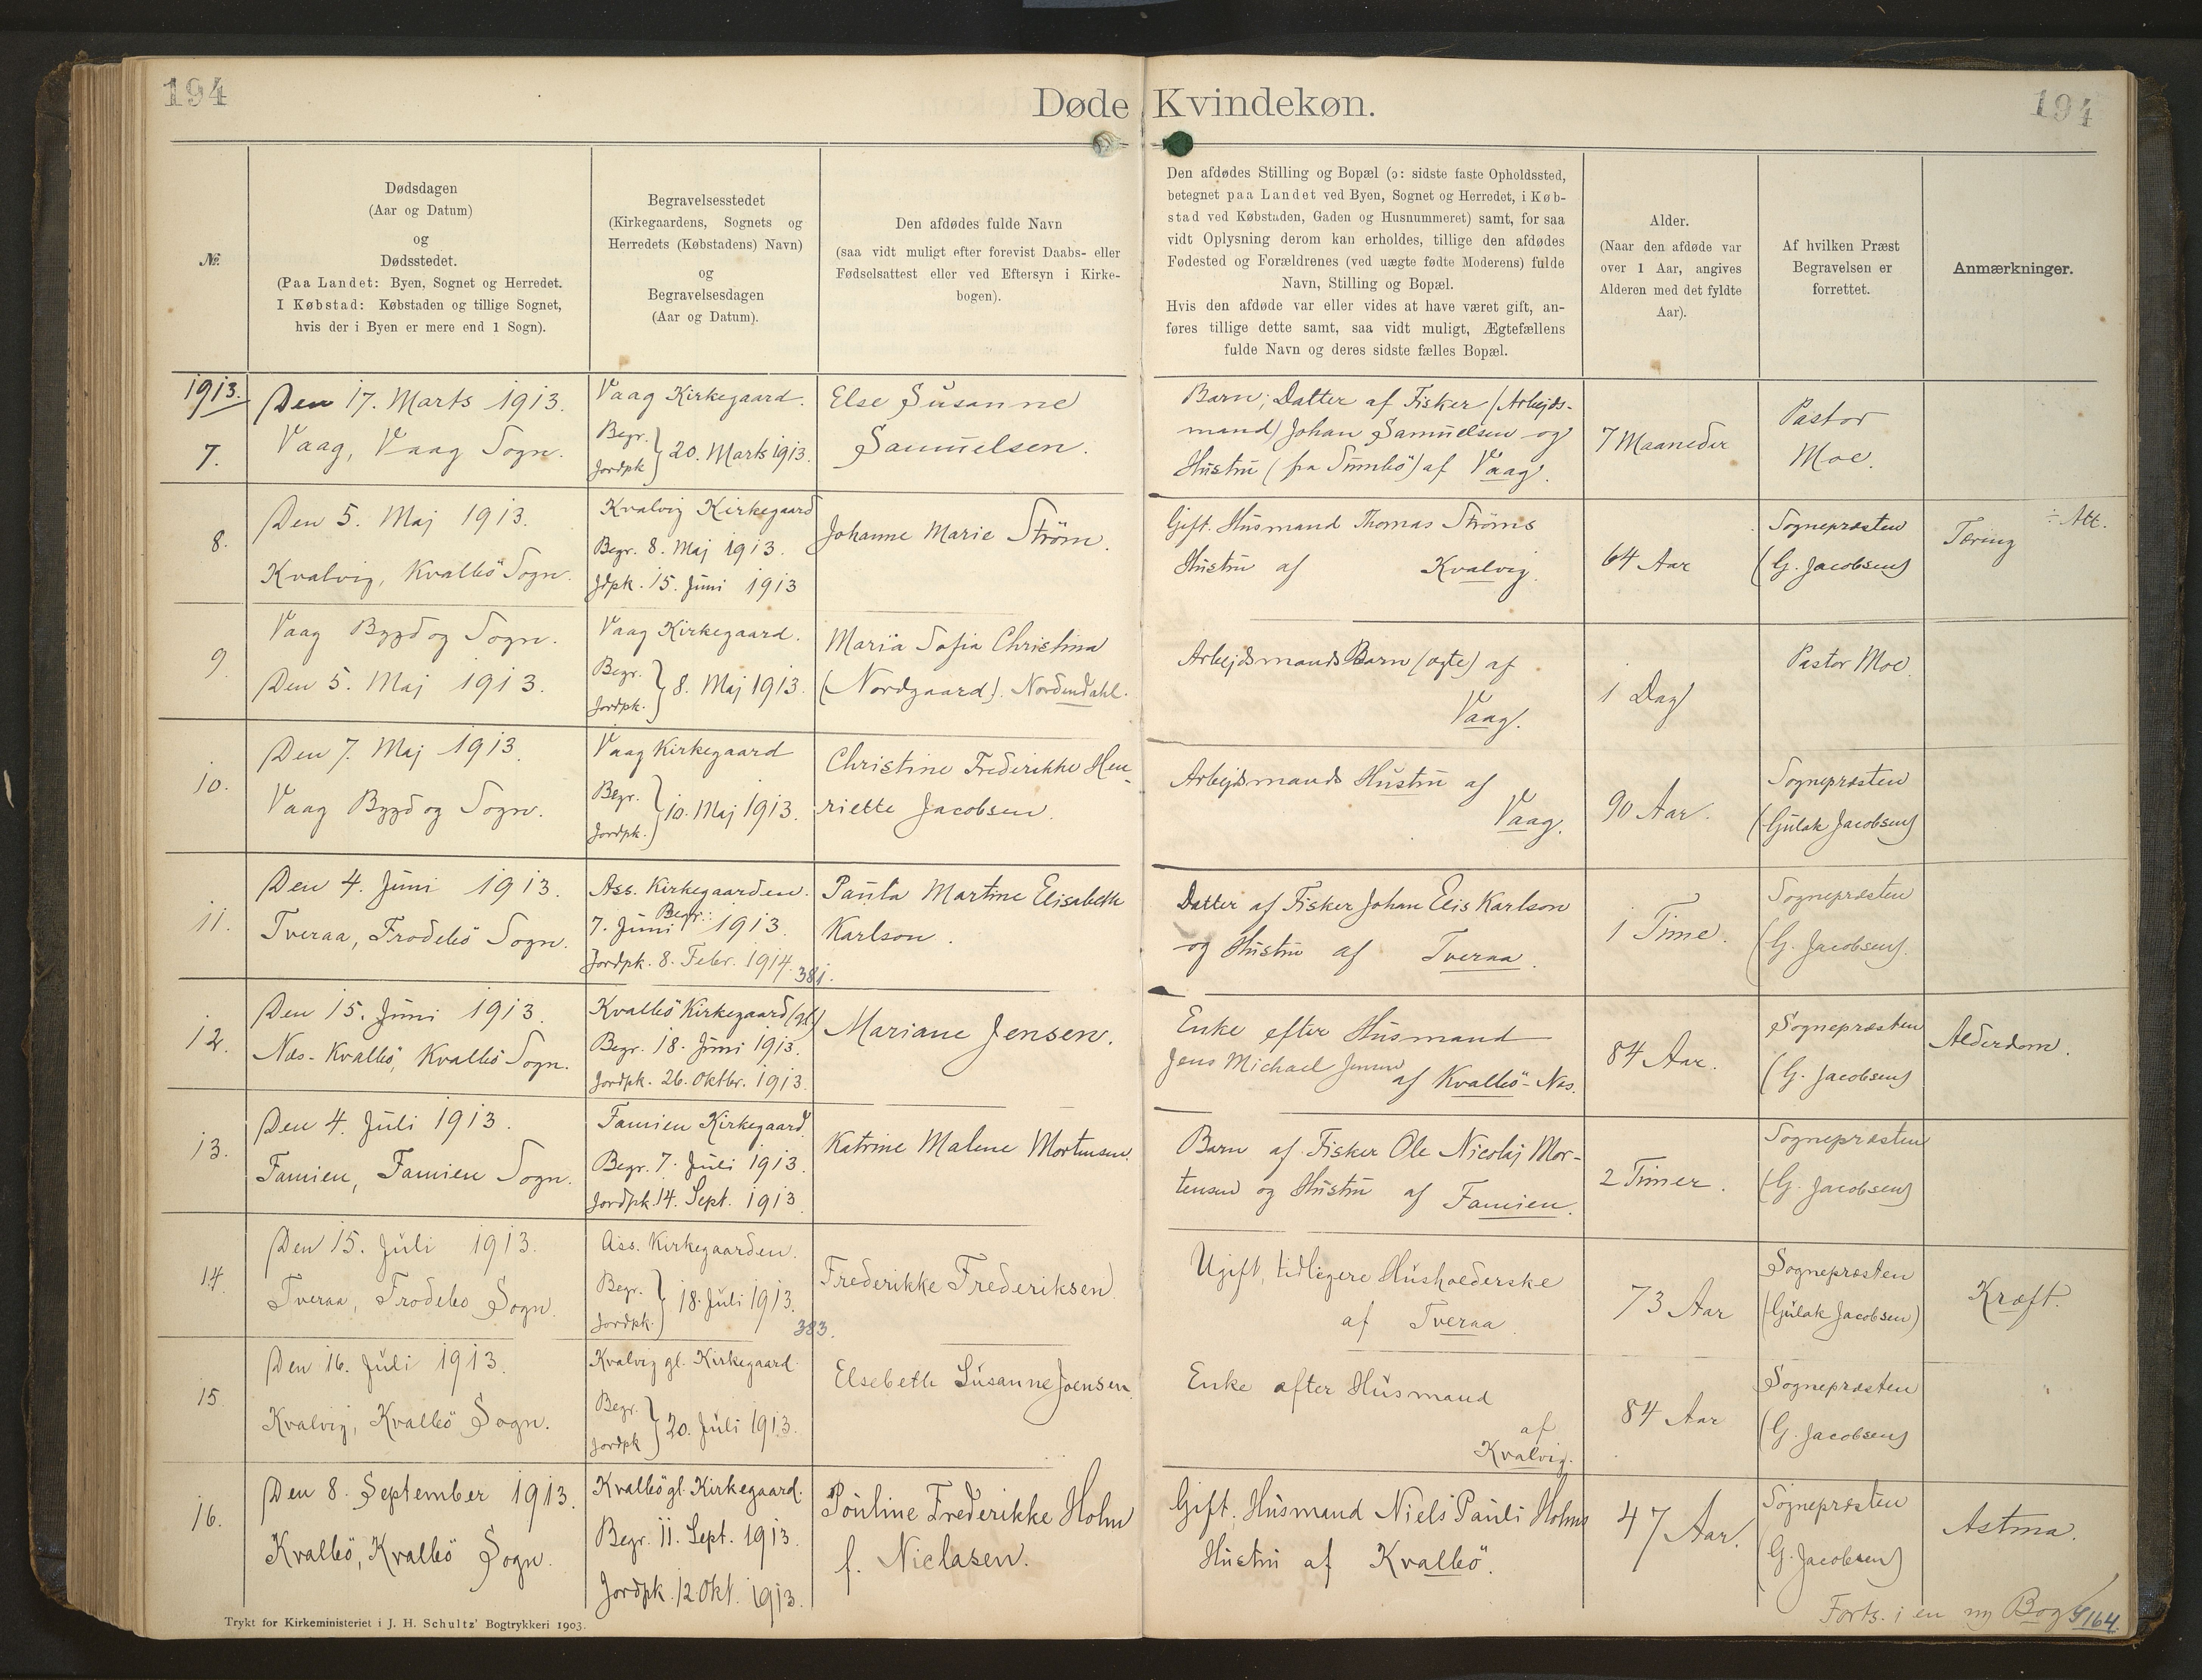 194
Døde Kvindekøn.
194
№.
Dødsdagen
(Aar og Datum)
og
Dødsstedet.
(Paa Landet: Byen, Sognet og Herredet.
I Købstad: Købstaden og tillige Sognet,
hvis der i Byen er mere end 1 Sogn).
Begravelsesstedet
(Kirkegaardens, Sognets og
Herredets (Købstadens) Navn)
og
Begravelsesdagen
(Aar og Datum).
Den afdødes fulde Navn
(saa vidt muligt efter forevist Daabs- eller
Fødselsattest eller ved Eftersyn i Kirke-
bogen).
Den afdødes Stilling og Bopæl (ɔ: sidste faste Opholdssted,
betegnet paa Landet ved Byen, Sognet og Herredet, i Køb-
stad ved Købstaden, Gaden og Husnummeret) samt, for saa
vidt Oplysning derom kan erholdes, tillige den afdødes
Fødested og Forældrenes (ved uægte fødte Moderens) fulde
Navn, Stilling og Bopæl.
Hvis den afdøde var eller vides at have været gift, an-
føres tillige dette samt, saa vidt muligt, Ægtefællens
fulde Navn og deres sidste fælles Bopæl.
Alder.
(Naar den afdøde var
over 1 Aar, angives
Alderen med det fyldte
Aar).
Af hvilken Præst
Begravelsen er
forrettet.
Anmærkninger.
1913.
7.
Den 17. Marts 1913.
Vaag, Vaag Sogn.
Vaag Kirkegaard.
Begr.
Jordpk } 20. Marts 1913.
Else Susanne
Samuelsen.
Barn; Datter af Fisker (Arbejds-
mand) Johan Samuelsen og
Hustru (fra Sumbö) af Vaag.
7 Maaneder
Pastor
Moe.
8.
Den 5. Maj 1913.
Kvalvig, Kvalbö Sogn.
Kvalvig Kirkegaard
Begr. 8. Maj 1913.
Jdpk. 15. Juni 1913
Johanne Marie Ström.
Gift. Husmand Thomas Ströms
Hustru af Kvalvig.
64 Aar
Sognepræsten
(G. Jacobsen)
Tæring
÷ Att.
9.
Vaag Bygd og Sogn.
Den 5. Maj 1913.
Vaag Kirkegaard.
Begr.
Jordpk. } 8. Maj 1913.
Maria Sofia Christina
(Nordgaard). Nordendahl.
Arbejdsmands Barn (ægte) af
Vaag.
1 Dag
Pastor Moe.
10.
Den 7. Maj 1913.
Vaag Bygd og Sogn.
Vaag Kirkegaard
Begr.
Jordpk. } 10. Maj 1913.
Christine Frederikke Hen-
riette Jacobsen.
Arbejdsmands Hustru af
Vaag.
90 Aar.
Sognepræsten
(Gulak Jacobsen)
11.
Den 4. Juni 1913.
Tveraa, Frodebö Sogn.
Ass. Kirkegaarden.
Begr.:
7. Juni 1913.
Jordpk. 8. Febr. 1914.
381.
Paula Martine Elisabeth
Karlson.
Datter af Fisker Johan Elis Karlson
og Hustru af Tveraa.
1 Time.
Sognepræsten
(G. Jacobsen).
12.
Den 15. Juni 1913.
Næs-Kvalbö, Kvalbö Sogn.
Kvalbö Kirkegaard (gl.)
Begr. 18. Juni 1913.
Jordpk. 26. Oktbr. 1913.
Mariane Jensen.
Enke efter Husmand
Jens Michael Jensen
af Kvalbö-Næs.
84 Aar.
Sognepræsten
(G. Jacobsen)
Alderdom.
13.
Den 4. Juli 1913.
Famien, Famien Sogn.
Famien Kirkegaard.
Begr. 7. Juli 1913.
Jordpk. 14. Sept. 1913.
Katrine Malene Mortensen.
Barn af Fisker Ole Nicolaj Mor-
tensen og Hustru af Famien.
2 Timer.
Sognepræsten
(G. Jacobsen)
14.
Den 15. Juli 1913.
Tveraa, Frodebo Sogn.
Ass. Kirkegaarden.
Begr.
Jordpk. } 18. Juli 1913.
383.
Frederikke Frederiksen.
Ugift, tidligere Husholderske
af Tveraa.
73 Aar
Sognepræsten
(Gulak Jacobsen)
Kræft.
15.
Den 16. Juli 1913.
Kvalvig, Kvalbö Sogn.
Kvalvig gl. Kirkegaard.
Begr.
Jordpk } 20. Juli 1913.
Elsebeth Susanne Joensen.
Enke efter Husmand
af
Kvalvig.
84 Aar
Sognepræsten
(G. Jacobsen)
16.
Den 8. September 1913.
Kvalbö, Kvalbö Sogn.
Kvalbö gl. Kirkegaard.
Begr. 11. Sept. 1913.
Jordpk. 12 Okt. 1913.
Pouline Frederikke Holm
f. Niclasen.
Gift. Husmand Niels Pauli Holms
Hustru af Kvalbö.
47 Aar.
Sognepræsten
(G. Jacobsen)
Astma.
Forts. i en ny Bog
Trykt for Kirkeministeriet i J. H. Schultz' Bogtrykkeri 1903.